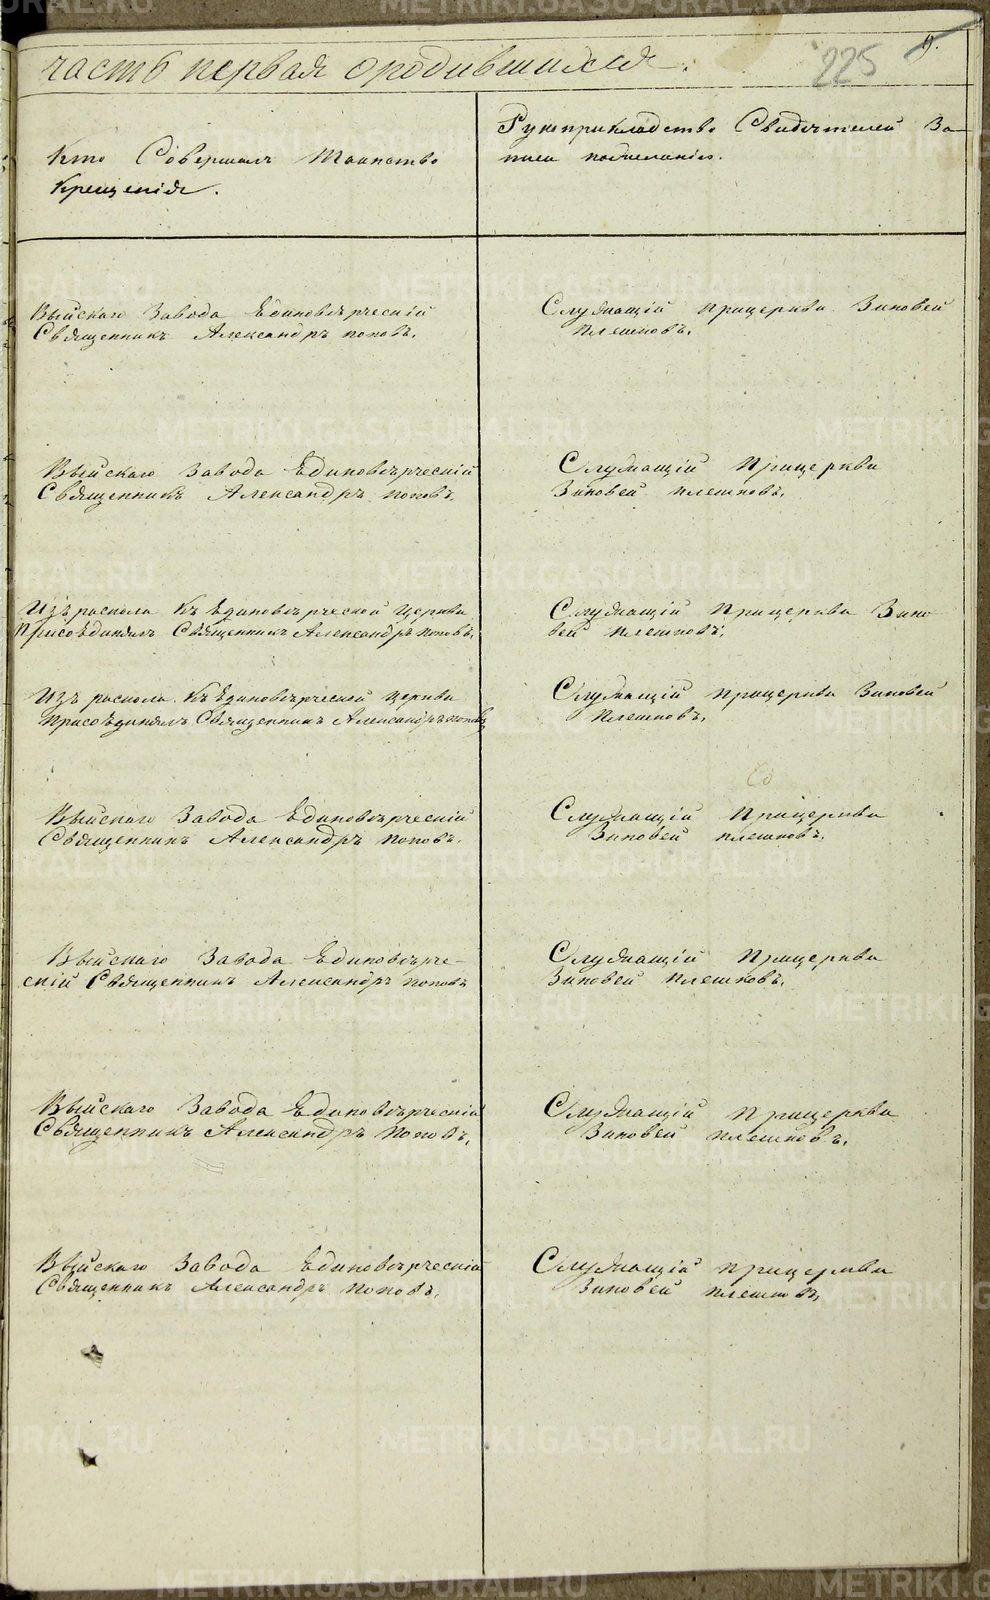 часть первая ородившихся.
225
9.
Кто Совершалъ Таинство
Крещенія.
Рукоприкладство Свидѣтелей За-
писи пожеланію.
Выйскаго Завода Единовѣрческій
Священникъ Александръ поповъ.
Служащій прицеркви Зиновей
плешковъ.
Выйскаго Завода Единовѣрческій
Священникъ Александръ поповъ.
Служащій прицеркви
Зиновей плешковъ.
Изъ раскола Къ Единовѣрческой церкви
присоединялъ Священникъ Александръ поповъ.
Служащій прицеркви Зино
вей плешковъ.
Изъ раскола Къ Единовѣрческой церкви
присоединялъ Священникъ Александръ поповъ
Служащій прицеркви Зиновей
плешковъ.
Выйскаго Завода Единовѣрческій
Священникъ Александръ поповъ.
Служащій прицеркви
Зиновей плешковъ.
Выйскаго Завода Единовѣрче-
скій Священникъ Александръ поповъ
Служащій прицеркви
Зиновей плешковъ.
Выйскаго Завода Единовѣрческій
Священникъ Александръ поповъ.
Служащій прицеркви
Зиновей плешковъ.
Выйскаго Завода Единовѣрческій
Священникъ Александръ поповъ.
Служащій прицеркви
Зиновей плешковъ.
METRIKI.GASO-URAL.RU